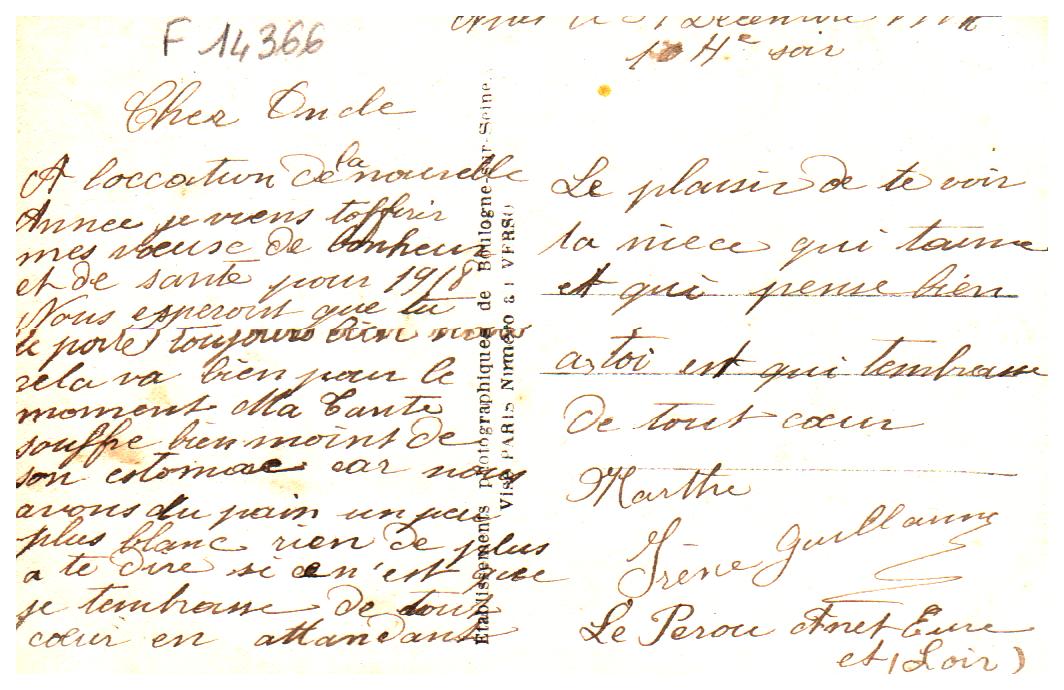 F 14366
le 31 Decembre
10 He soir
Cher Oncle
A loccation de la nouvelle
Annee je viens toffrir
mes vœuse de bonheur
et de santé pour 1918
Nous esperont que tu
te porte toujours bien nous
cela va bien pour le
moment Ma Tante
souffre bien moint de
son estomac car nous
avons du pain un peu
plus blanc rien de plus
a te dire si ce n'est que
je tembrasse de tout
cœur en attandant
Etablissements photographiques de Boulogne-sur-Seine.
Visé PARIS Numéro au VERSO
Le plaisir de te voir
ta niece qui taime
et qui pense bien
a toi est qui tembrasse
de tout cœur
Marthe
Irène Guillaume
Le Perou Anet Eure
et (Loir)